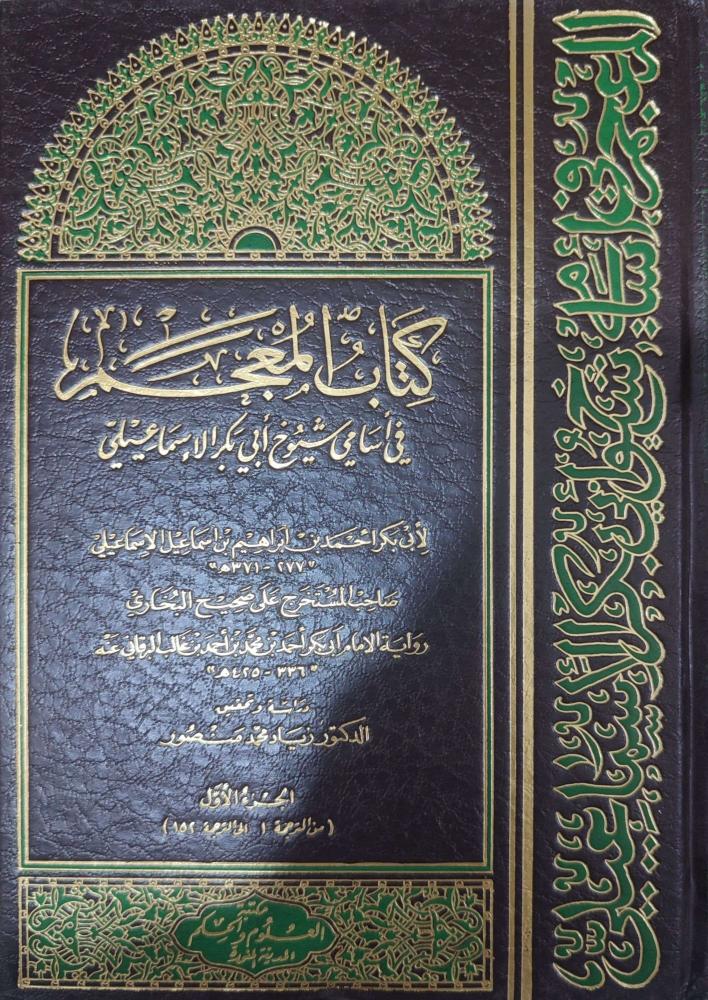 كِتَابُ المُعْجَم
في أسامي شيوخ أبي بكر الإسماعيلي
لأبي بكر أحمد بن إبراهيم بن إسماعيل الإسماعيلي
"٢٧٧ - ٣٧١هـ"
صاحب المستخرج على صحيح البخاري
رواية الامام أبي بكر أحمد بن محمد بن أحمد بن غالب البرقاني عنه
"٣٣٦ - ٤٢٥هـ"
دراسة وتحقيق
الدكتور زياد محمد منصور
الجزء الأول
(من الترجمة ١ الى الترجمة ١٥٢)
مكتبة
العلوم والحكم
المدينة المنورة
المعجم في أسامي شيوخ أبي بكر الإسماعيلي